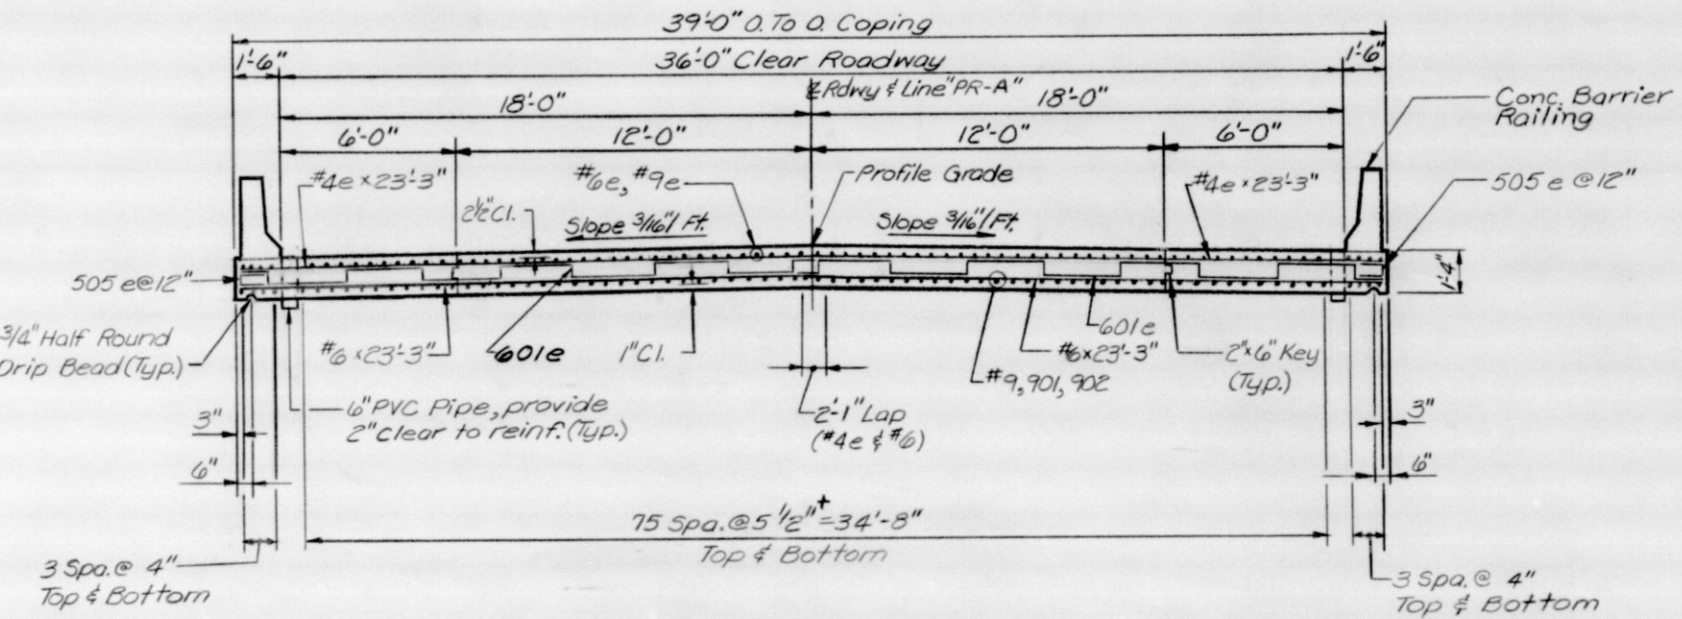 39'-0" O. To O. Coping
1'-6"
36'-0" Clear Roadway
1'-6"
℄ Rdwy & Line "PR-A"
18'-0"
18'-0"
Conc. Barrier
Railing
6'-0"
12'-0"
12'-0"
6'-0"
#4e × 23'-3"
#6e, #9e
Profile Grade
#4e × 23'-3"
505 e @ 12"
2½" Cl.
Slope 3/16"/Ft.
Slope 3/16"/Ft.
505 e @ 12"
1'-4"
3/4" Half Round
Drip Bead (Typ.)
#6 × 23'-3"
601e
1" Cl.
601e
#6 × 23'-3"
2" × 6" Key
(Typ.)
#9, 901, 902
6" PVC Pipe, provide
2" clear to reinf. (Typ.)
2'-1" Lap
(#4e & #6)
3"
3"
6"
6"
75 Spa. @ 5 1/2"+ = 34'-8"
Top & Bottom
3 Spa. @ 4"
Top & Bottom
3 Spa. @ 4"
Top & Bottom